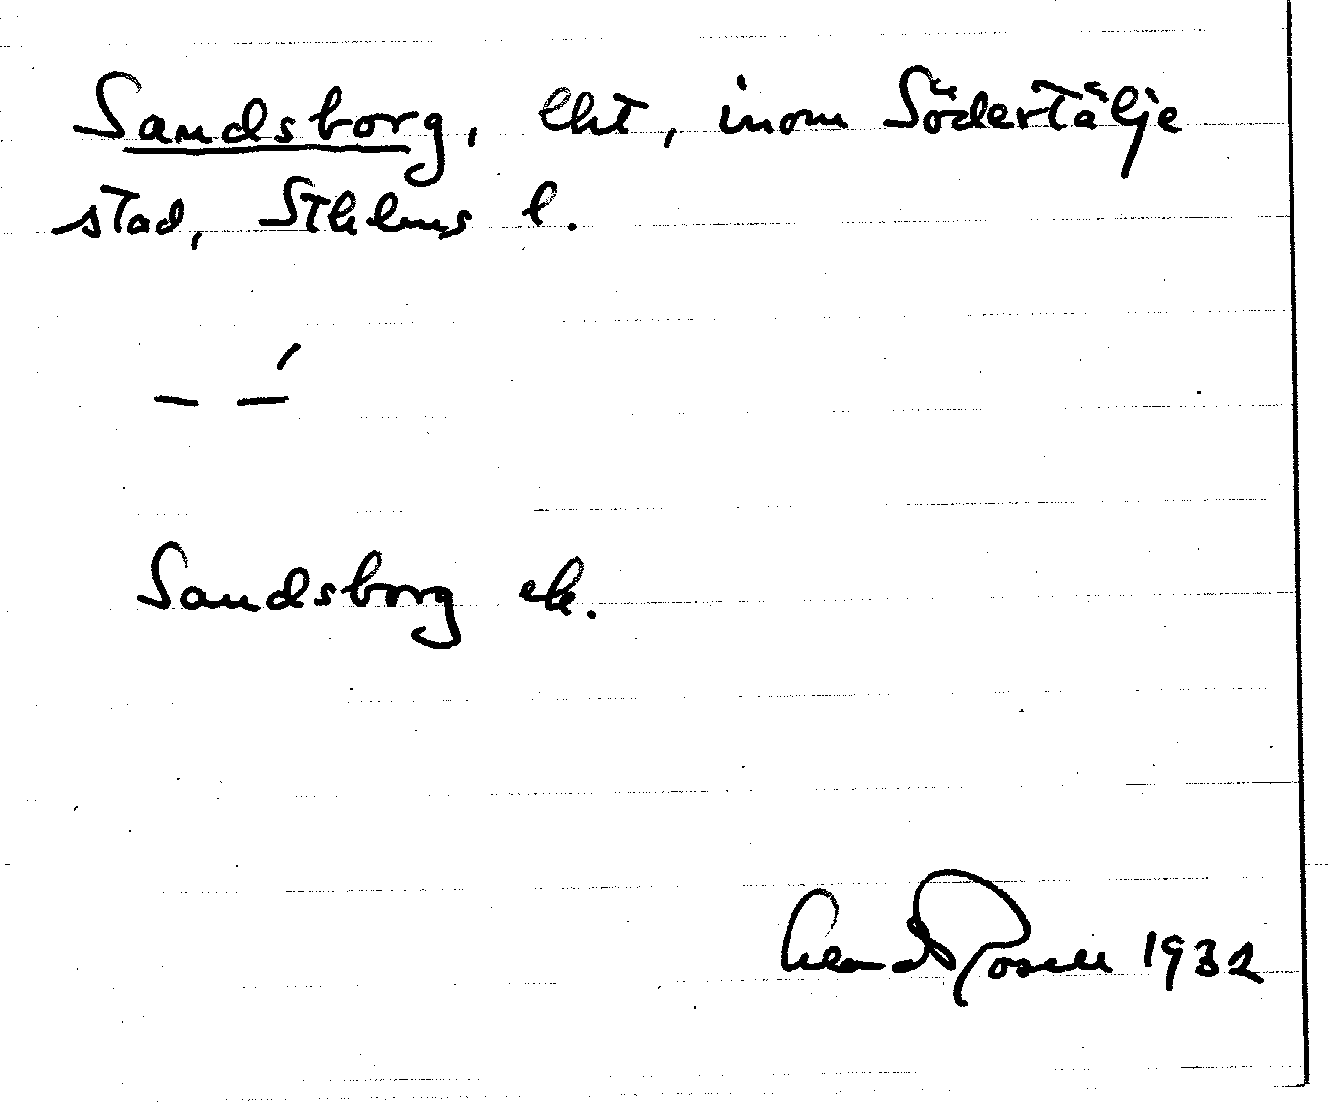 Sandsborg, lht, inom Södertälje
stad, Sthlms l.
– –́
Sandsborg ek.
1932